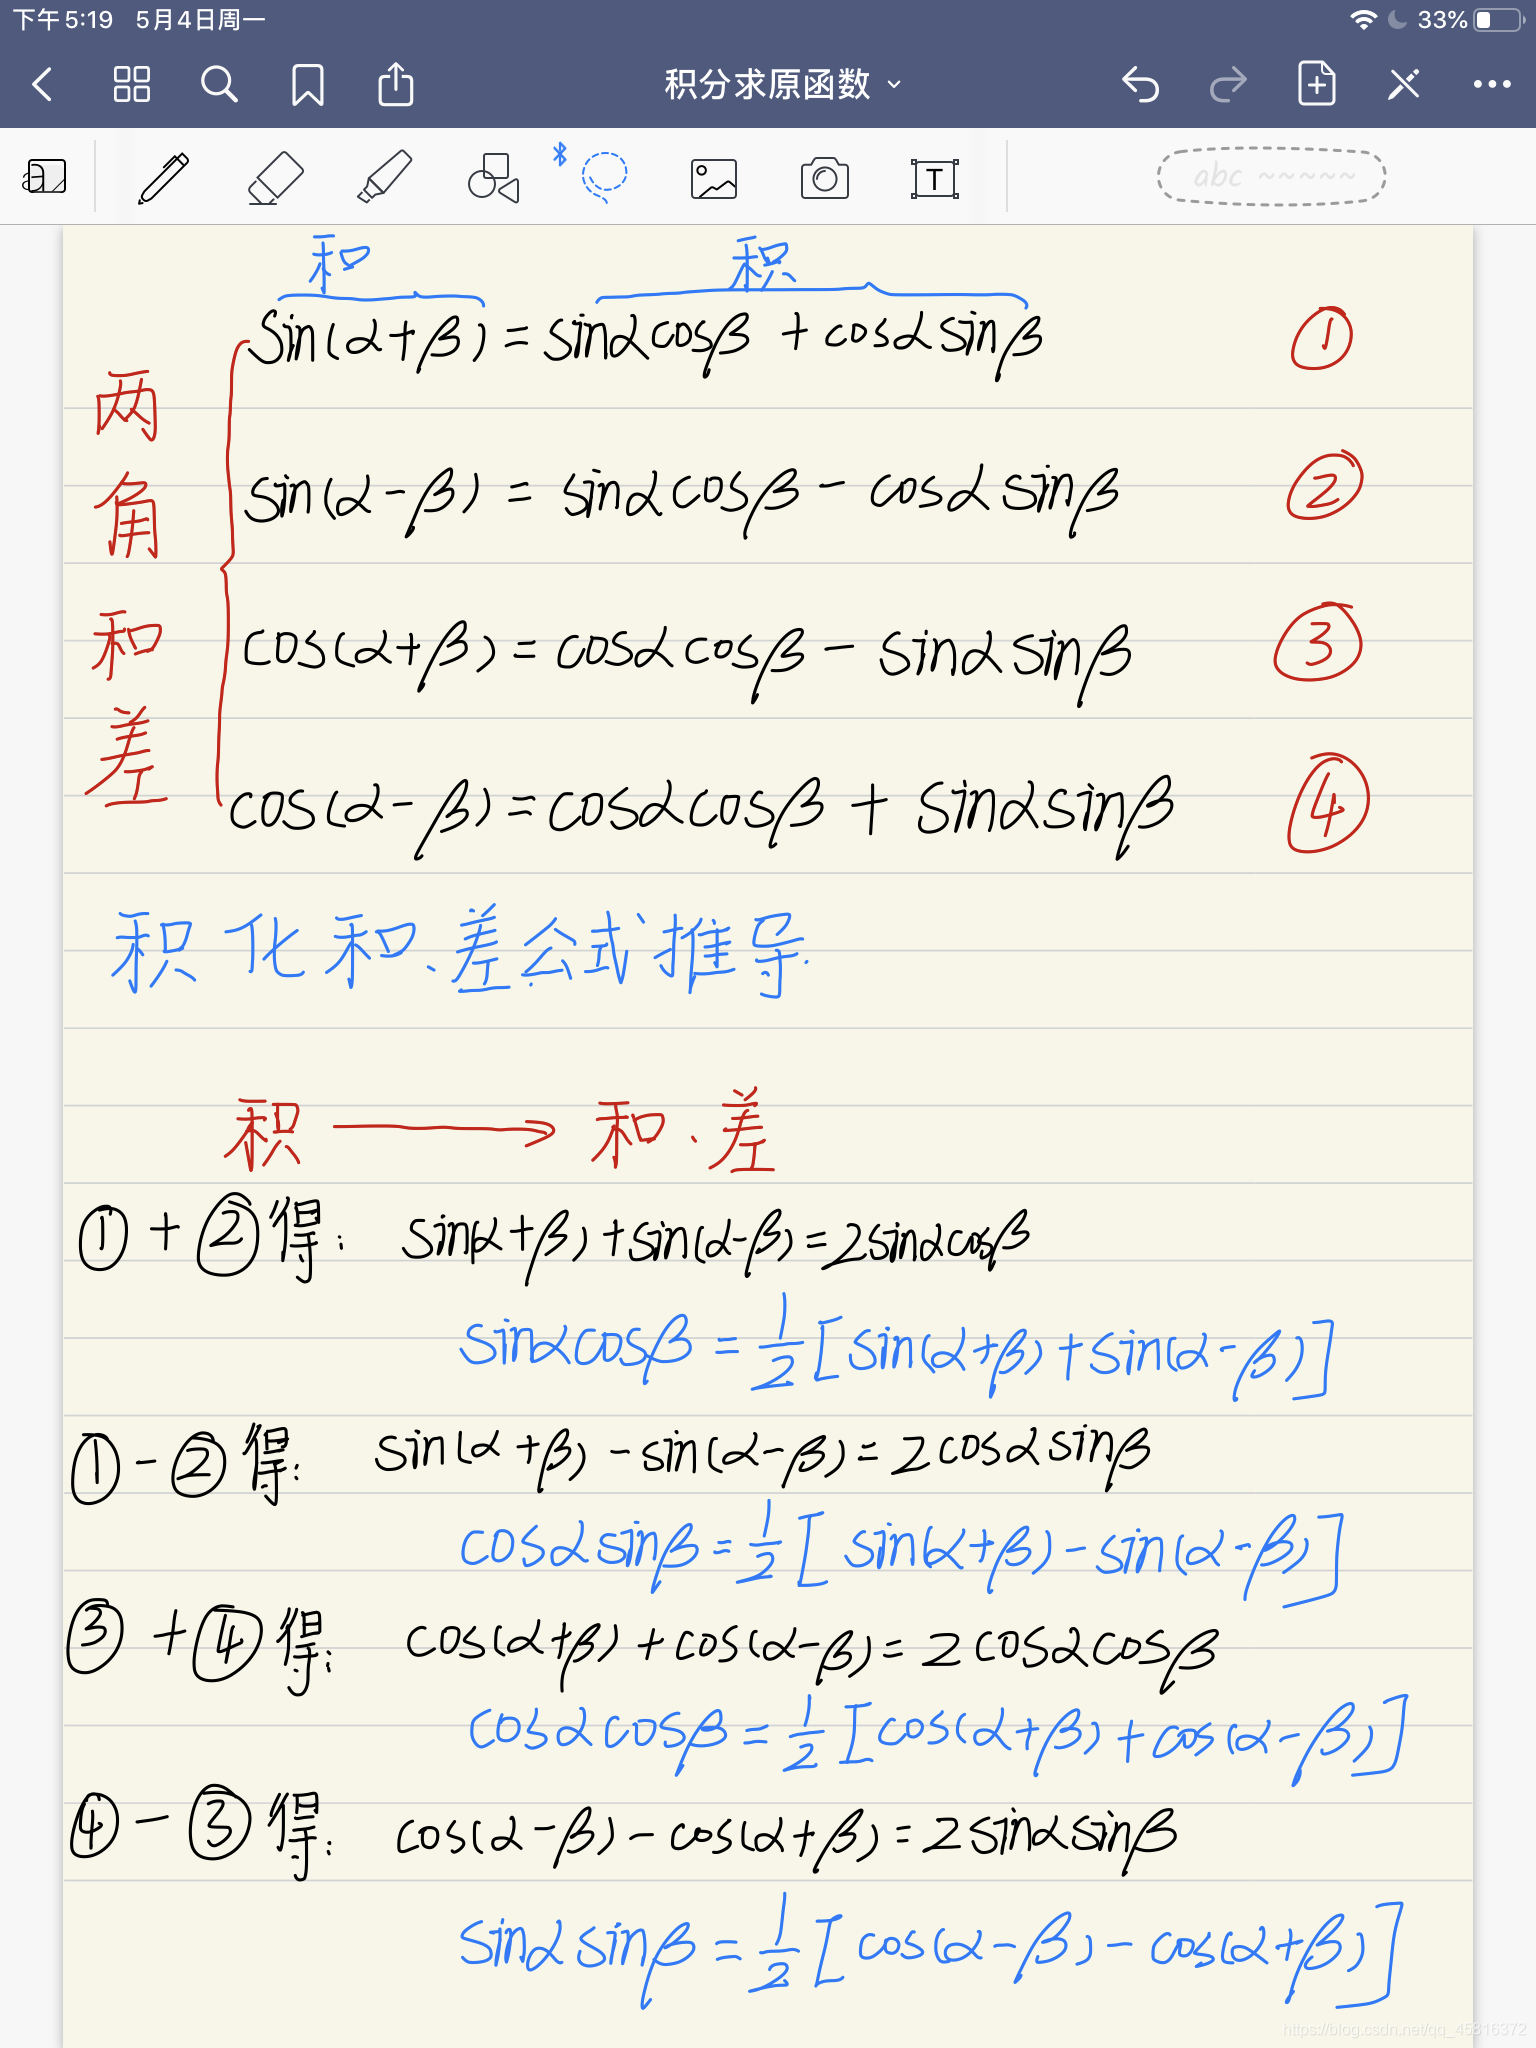 下午5:19 5月4日周一 33%
积分求原函数
T abc
和 积
sin(α+β) = sinαcosβ + cosαsinβ ①
sin(α-β) = sinαcosβ - cosαsinβ ②
两角和差
cos(α+β) = cosαcosβ - sinαsinβ ③
cos(α-β) = cosαcosβ + sinαsinβ ④
积化和、差公式推导.
积 → 和、差
①+②得: sin(α+β)+sin(α-β)=2sinαcosβ
sinαcosβ = 1/2[sin(α+β)+sin(α-β)]
①-②得: sin(α+β)-sin(α-β)=2cosαsinβ
cosαsinβ = 1/2[sin(α+β)-sin(α-β)]
③+④得: cos(α+β)+cos(α-β)=2cosαcosβ
cosαcosβ = 1/2[cos(α+β)+cos(α-β)]
④-③得: cos(α-β)-cos(α+β)=2sinαsinβ
sinαsinβ = 1/2[cos(α-β)-cos(α+β)]
https://blog.csdn.net/qq_45816372